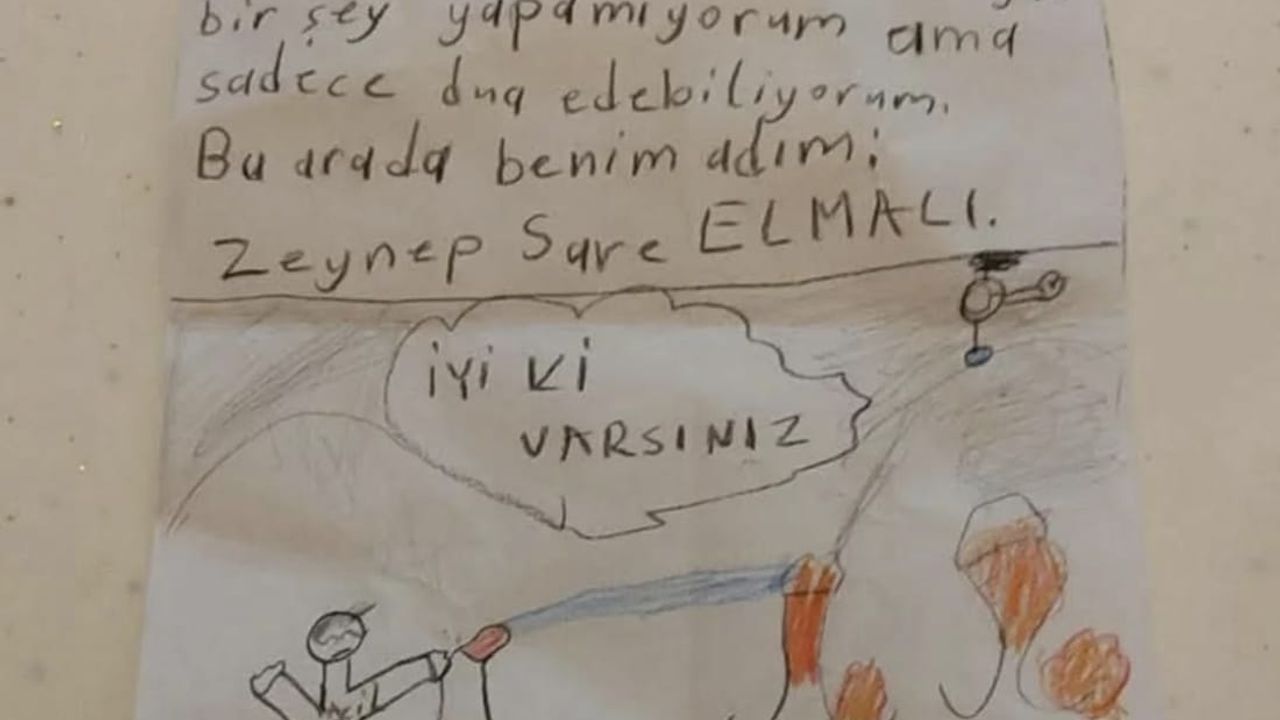 bir şey yapamıyorum ama
sadece dua edebiliyorum.
Bu arada benim adım:
Zeynep Sare ELMALI.
İYİ Kİ
VARSINIZ